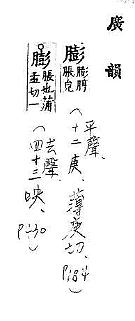 廣韻
膨膨脝脹皃
(平聲、十二庚、薄庚切、P184)
膨脹也蒲孟切一
(去聲、四十三映、P430)